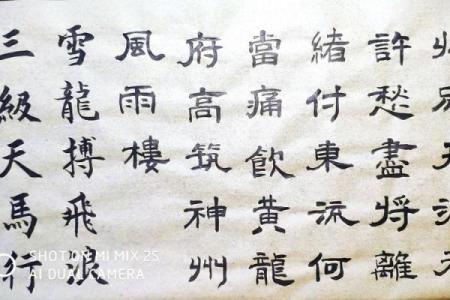 許愁盡將離
緒付東流何
當痛飲黄龍
府高筑神州
風雨樓
雪龍搏飛浪
三級天馬行
SHOT ON MI MIX 2S
AI DUAL CAMERA